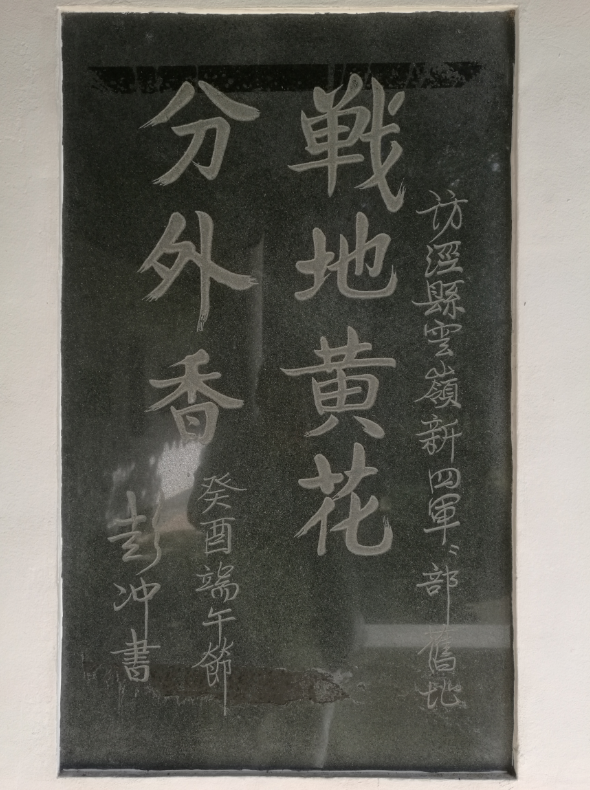 访泾縣雲嶺新四軍〻部舊地
戰地黄花
分外香
癸酉端午節
彭冲書